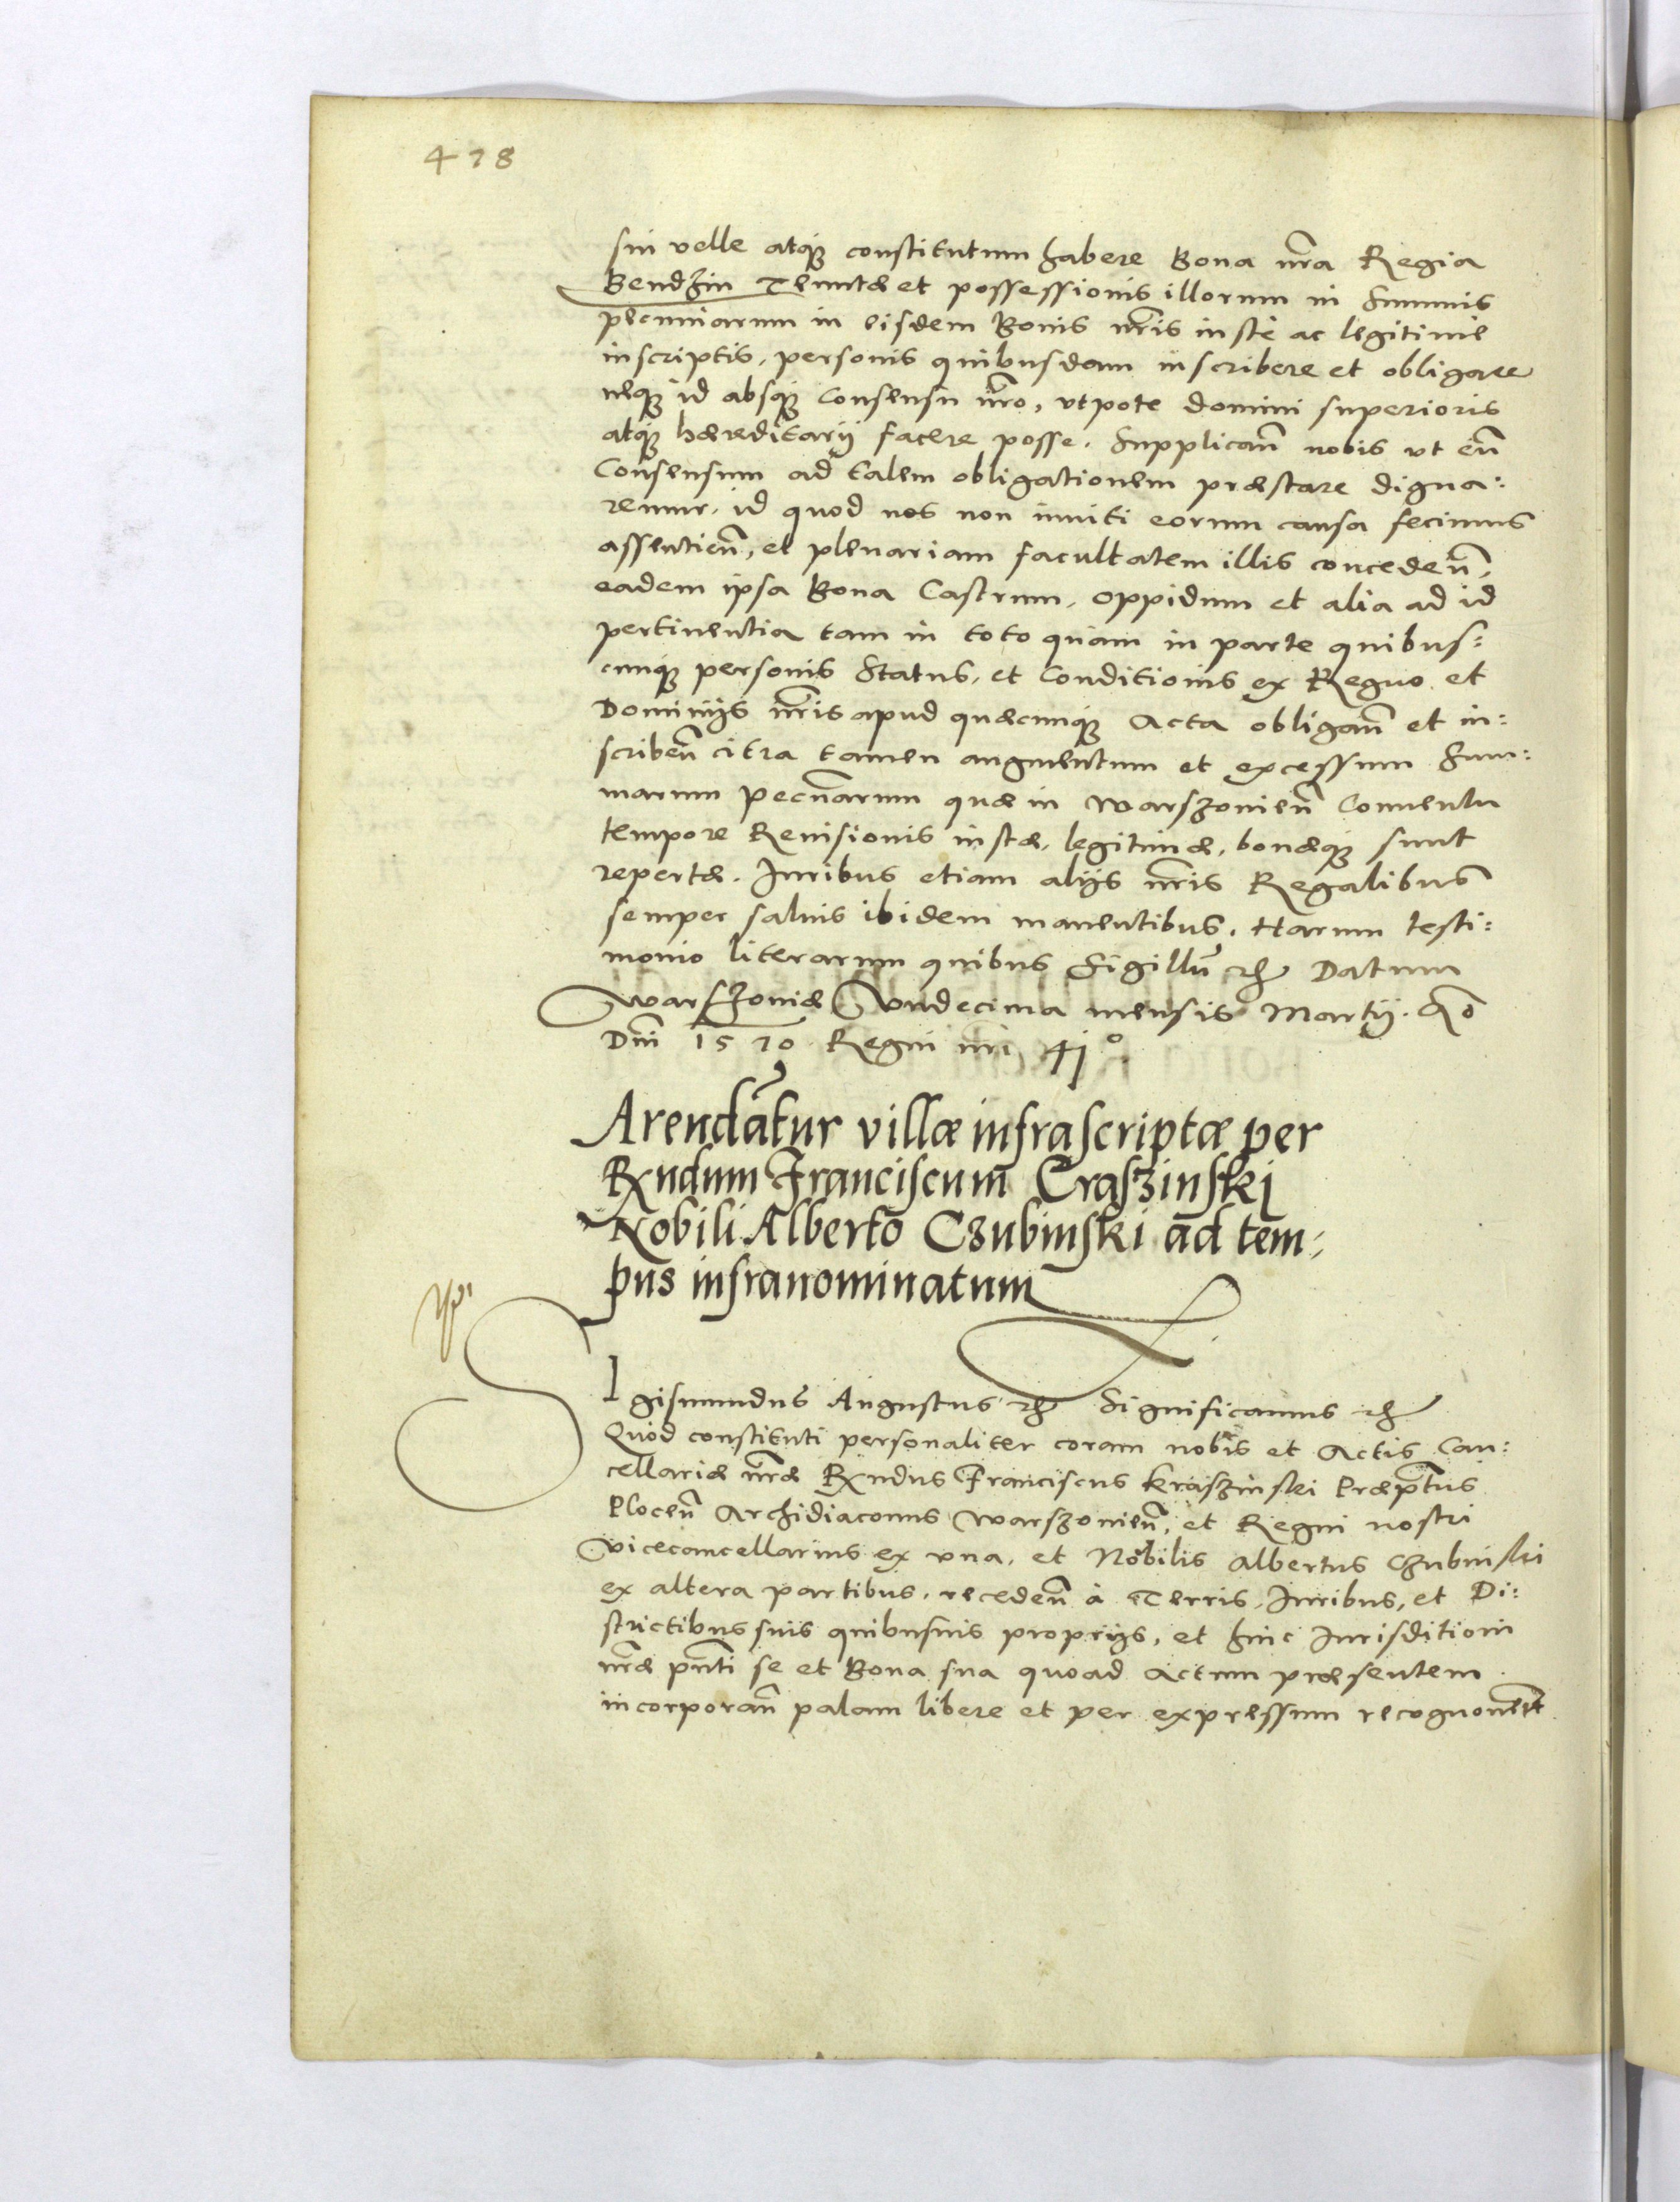 478
sui velle atqꝫ constitutum habere Bona nr̃a Regia
Bendzin Tenutæ et possessionis illorum in Summis
pecuniarum in eisdem Bonis nr̃is iustè ac legitimè
inscriptis, personis quibusdam inscribere et obligare
neqꝫ id absqꝫ Consensu nr̃o, vtpote domini superioris
atqꝫ hæreditarij facere posse. Supplicañ nobis vt eũ
Consensum ad talem obligationem præstare digna:
remur. id quod nos non inuiti eorum causa fecimus
assentieñ, et plenariam facultatem illis concedeñ,
eadem ipsa Bona Castrum, oppidum et alia ad id
pertinentia tam in toto quam in parte quibus:
cunqꝫ personis Status, et Conditionis ex Regno et
Dominijs nr̃is apud quæcunqꝫ Acta obligañ et in:
scribeñ citra tamen augmentum et excessum Sum:
marum pecũarum quæ in Warszouieñ Conuentu
tempore Reuisionis iustæ, legitimæ, bonæqꝫ sunt
repertæ. Iuribus etiam alijs nr̃is Regalibus
semper saluis ibidem manentibus. Harum testi:
monio literarum quibus Sigillũ etc Datum
Warszouiæ Vndecima mensis Martij. Ao
Dñi 1570 Regni nr̃i 41o
Arendãtur villæ infrascriptæ per
Rx̃ndum Franciscum Craszinski
Nobili Alberto Czubinski ad tem:
pus infranominatum
SIgismundus Augustus etc Significamus etc
Quod constituti personaliter coram nobis et Actis Can:
cellariæ nr̃æ Rx̃ndus Franciscus Kraszinski Præp̃tus
Ploceñ Archidiaconus Warszouieñ, et Regni nostri
Vicecancellarius ex vna, et Nobilis Albertus Czubinski
ex altera partibus, recedeñ à Terris, Iuribus, et Di:
strictibus suis quibusuis proprijs, et huic Iurisditioni
nr̃æ pñti se et Bona sua quoad Actum præsentem
incorporañ palam libere et per expressum recognouer̃t